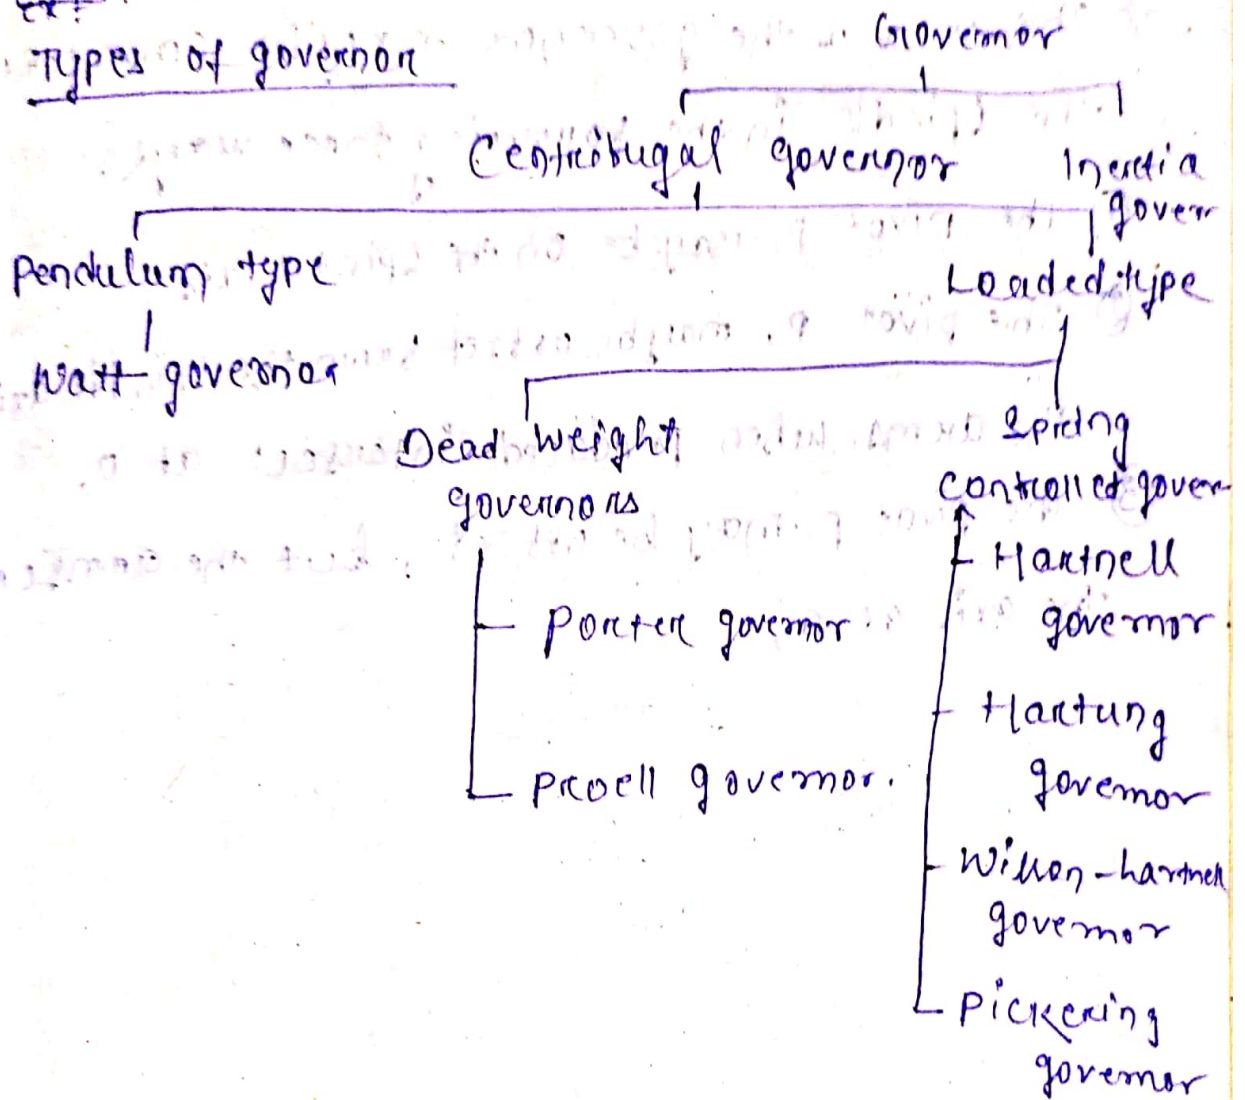 Ex:
Types of governor
Governor
Centrifugal governor
Inertia
gover
Pendulum type
Loaded type
Watt governor
Dead weight
governors
Spring
controlled gover
Hartnell
governor
Porter governor
Hartung
governor
Proell governor.
Wilson-hartnell
governor
Pickering
governor